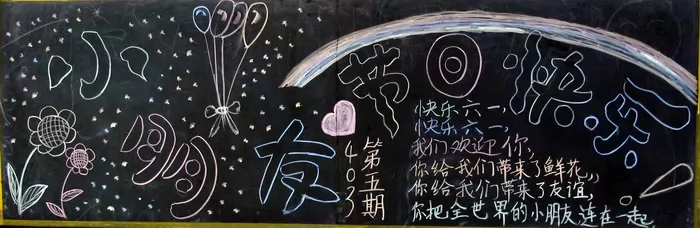 小朋友节日快乐
第五期
403
快乐六一,
快乐六一,
我们欢迎你,
你给我们带来了鲜花,
你给我们带来了友谊,
你把全世界的小朋友连在一起